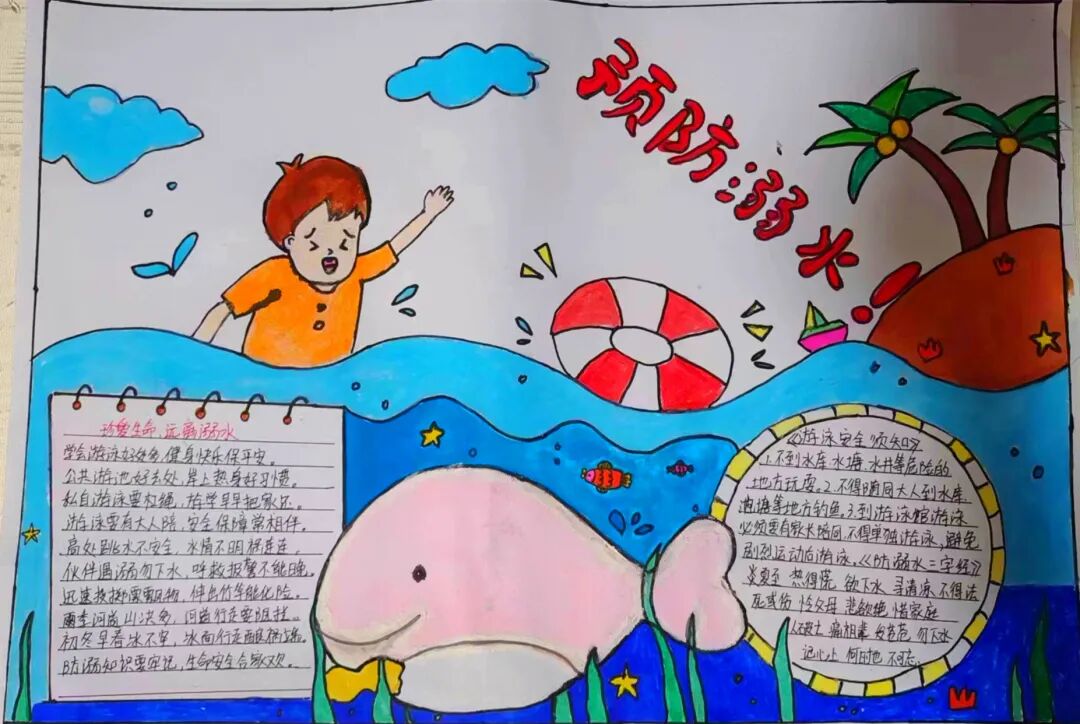 预防溺水！
珍爱生命 远离溺水
学会游泳好处多，健身快乐保平安。
公共游池好去处，岸上热身好习惯。
私自游泳要杜绝，
游泳要有大人陪，安全保障常相伴。
高处跳水不安全，水情不明祸连连。
伙伴遇溺勿下水，呼救报警不能晚。
雨季河道山洪多，河道行走要阻拦。
初冬早春冰不牢，冰面行走酿祸端。
防溺知识要牢记，生命安全合家欢。
《游泳安全须知》
1.不到水库水塘 水井等危险的
地方玩耍。2.不得瞒同大人到水库
池塘等地方钓鱼。3.到游泳馆游泳
必须要有家长陪同，不得单独游泳，避免
剧烈运动后游泳，《防溺水三字经》
炎夏至 热得慌 欲下水 寻清凉 不得法
死或伤 恸父母 悲欲绝 惜家庭
勿下水
记心上 何时地 不可忘